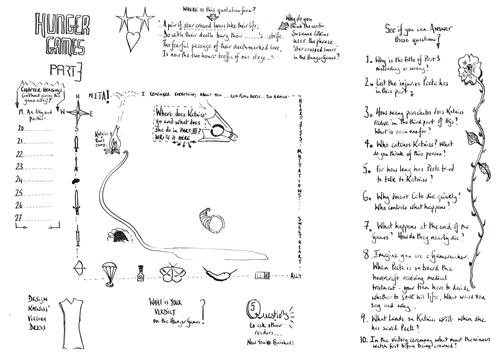 HUNGER
GAMES
PART 3
WHERE is this quotation from?
A pair of star crossed lovers take their life;
Do with their death bury their ........'s strife
The fearful passage of their death-marked love,
Is now the two hours' traffic of our stage..."
Why do you
think the writer
Suzanne Collins
uses the phrase
'Star crossed lovers'
in the Hunger Games?
CHAPTER HEADINGS
(without giving the
game away!)
19.
20.
21.
22.
23.
24.
25.
26.
27.
META!
I REMEMBER EVERYTHING ABOUT YOU
Katniss
camp.
Where does Katniss
go and what does
she do in PART III?
WRITE it HERE
ALLY
DESIGN
KATNISS'
VICTORY
DRESS
WHAT IS YOUR
VERDICT
on the Hunger Games
?
5
Questions
to ask other
readers...
Now You're Finished!
See if you can ANSWER
these questions!
1. Why is the title of Part 3
misleading or wrong?
2. List the injuries Peeta has
in this part
3. How many parachutes does Katniss
receive in the third part of HG?
What is each one for?
4. Who catches Katniss? What
do you think of this person?
5. For how long has Peeta tried
to talk to Katniss?
6. Why doesn't Cato die quickly?
Who controls what happens?
7. What happens at the end of the
Games? How do they nearly die?
8. Imagine you are a Gamesmaker.
When Peeta is on board the
hovercraft receiving medical
treatment - your team have to decide
whether to save his life. What would you
say and why.
9. What lands on Katniss with when she
has saved Peeta?
10. In the victory ceremony what must the winners
watch first before being crowned?